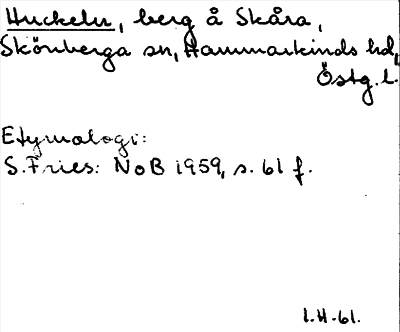 Huckeln, berg å Skåra,
Skönberga sn, Hammarkinds hd,
Östg.l.
Etymologi:
S.Fries: NoB 1959, s. 61 f.
I.H-61.